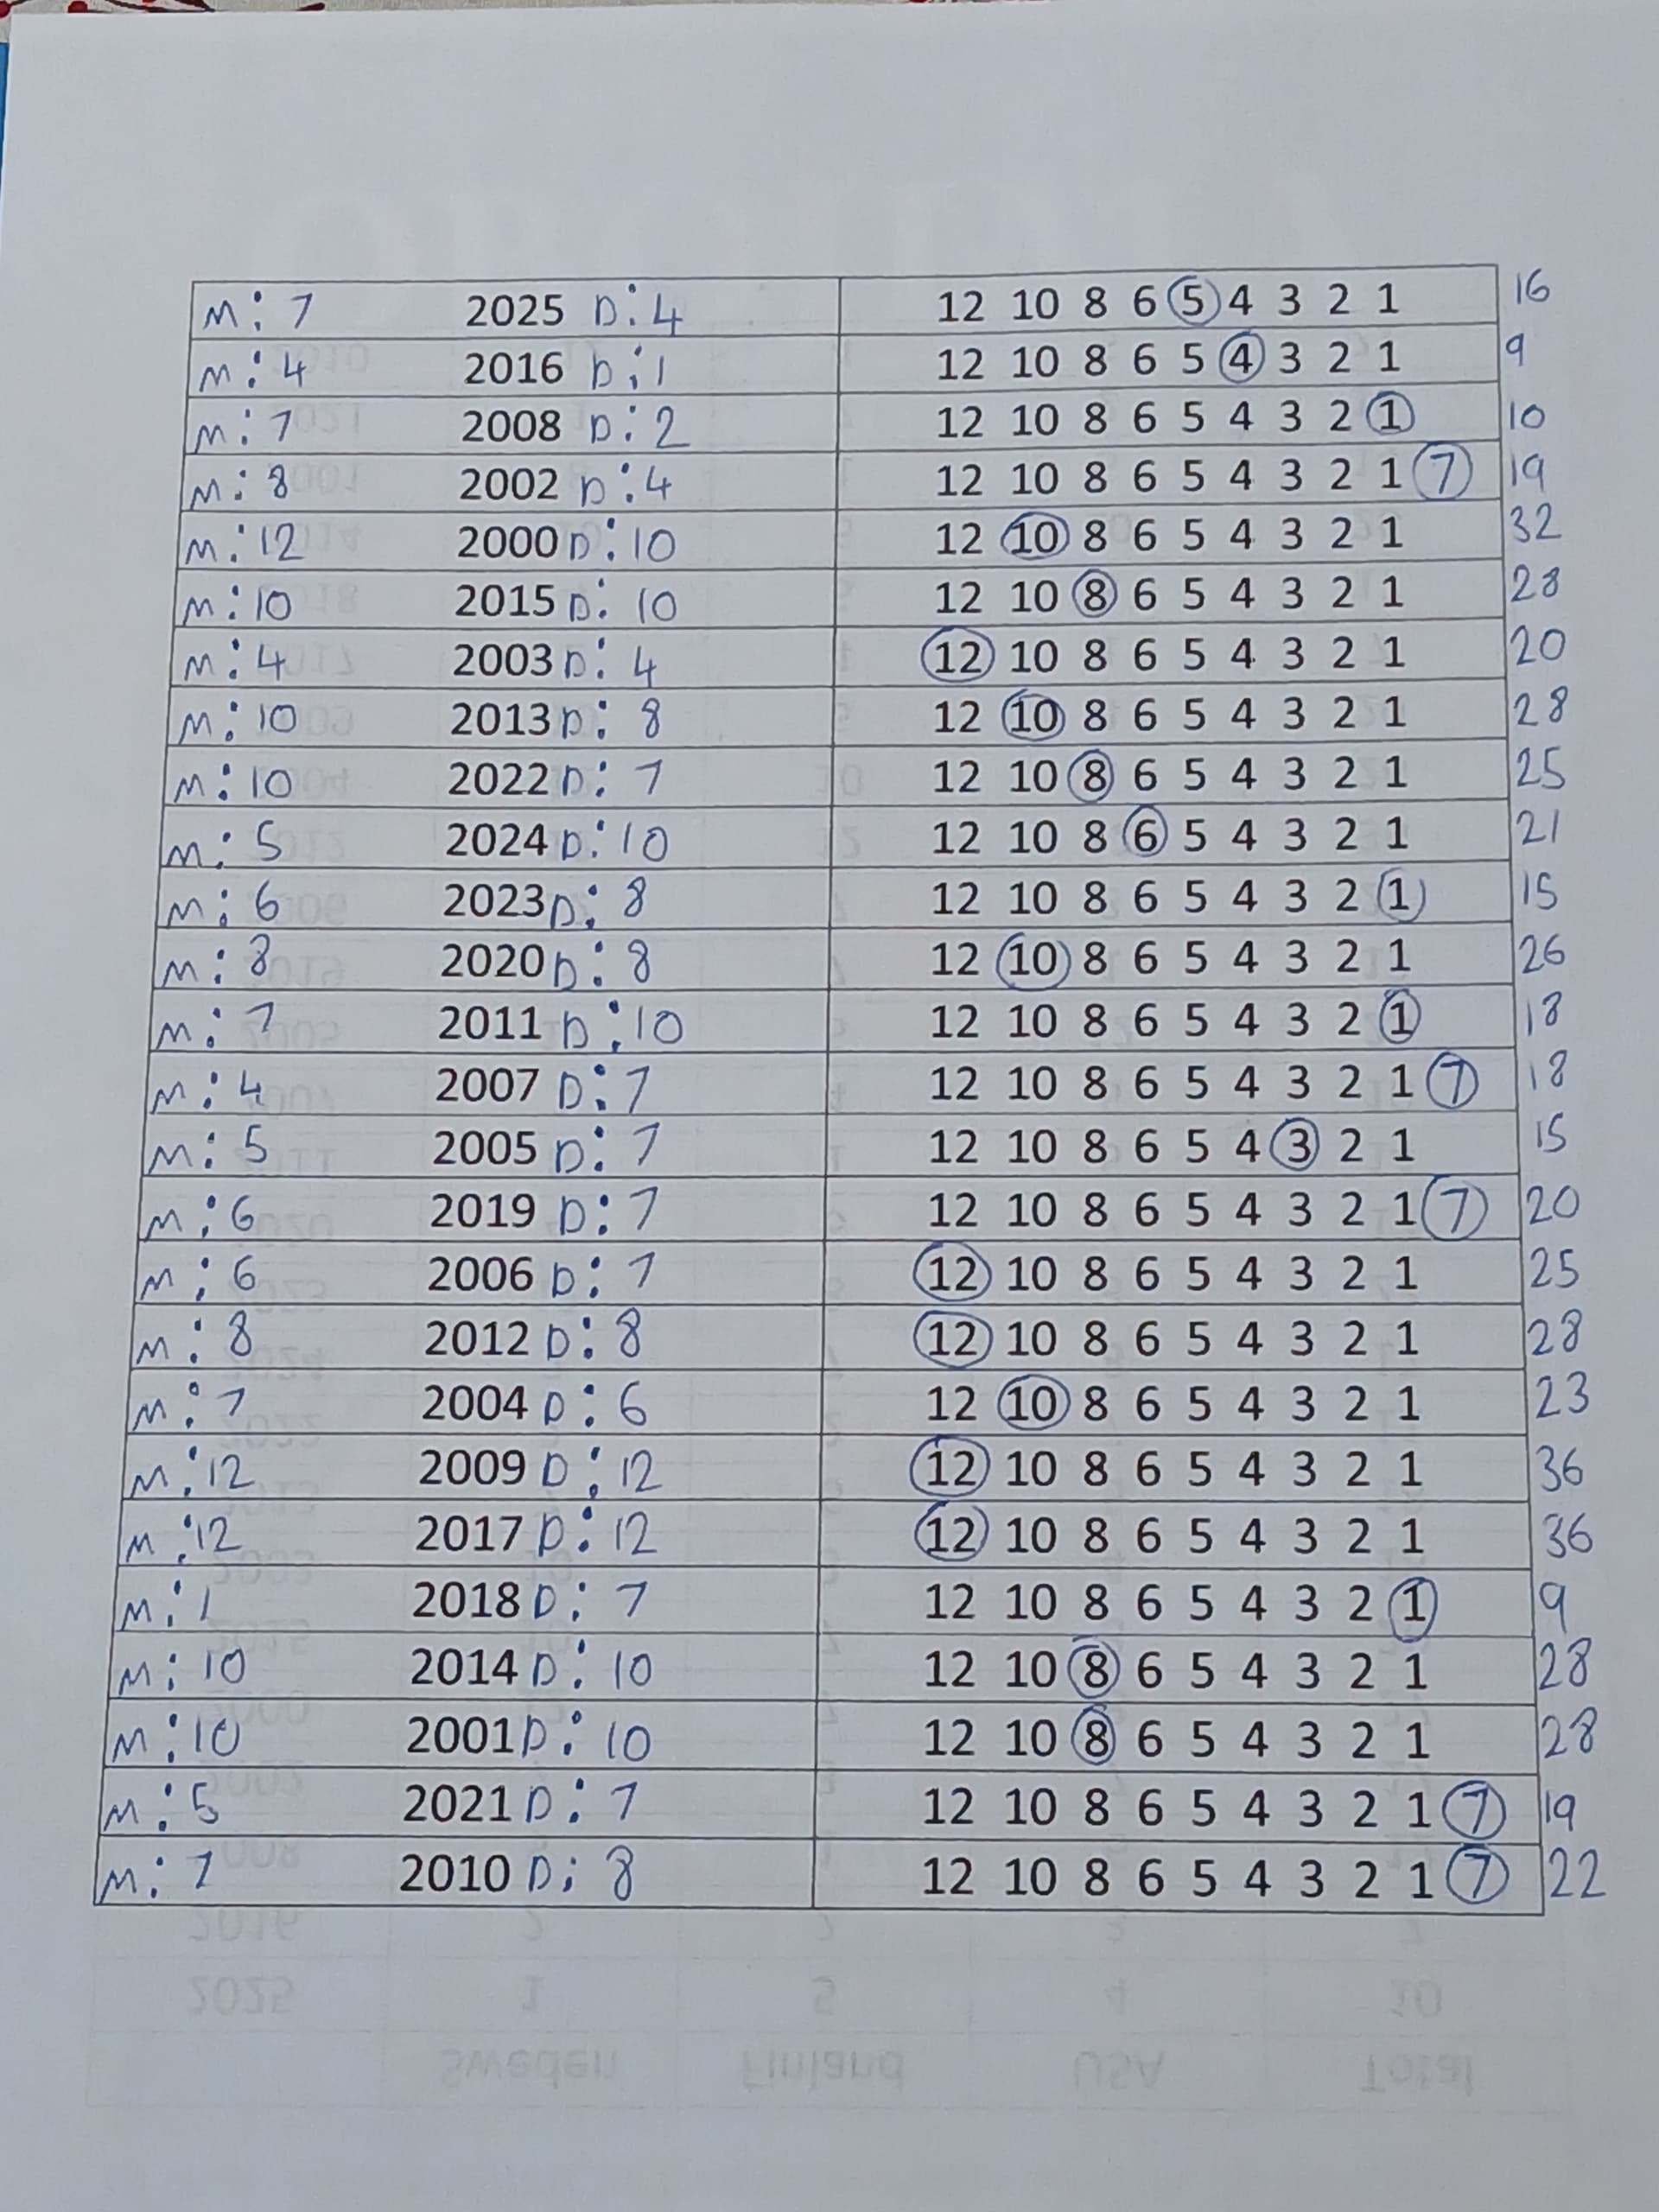 M: 7 2025 D: 4 12 10 8 6 5 4 3 2 1 16
M: 4 2016 D: 1 12 10 8 6 5 4 3 2 1 9
M: 7 2008 D: 2 12 10 8 6 5 4 3 2 1 10
M: 8 2002 D: 4 12 10 8 6 5 4 3 2 1 7 19
M: 12 2000 D: 10 12 10 8 6 5 4 3 2 1 32
M: 10 2015 D: 10 12 10 8 6 5 4 3 2 1 28
M: 4 2003 D: 4 12 10 8 6 5 4 3 2 1 20
M: 10 2013 D: 8 12 10 8 6 5 4 3 2 1 28
M: 10 2022 D: 7 12 10 8 6 5 4 3 2 1 25
M: 5 2024 D: 10 12 10 8 6 5 4 3 2 1 21
M: 6 2023 D: 8 12 10 8 6 5 4 3 2 1 15
M: 8 2020 D: 8 12 10 8 6 5 4 3 2 1 26
M: 7 2011 D: 10 12 10 8 6 5 4 3 2 1 18
M: 4 2007 D: 7 12 10 8 6 5 4 3 2 1 7 18
M: 5 2005 D: 7 12 10 8 6 5 4 3 2 1 15
M: 6 2019 D: 7 12 10 8 6 5 4 3 2 1 7 20
M: 6 2006 D: 7 12 10 8 6 5 4 3 2 1 25
M: 8 2012 D: 8 12 10 8 6 5 4 3 2 1 28
M: 7 2004 D: 6 12 10 8 6 5 4 3 2 1 23
M: 12 2009 D: 12 12 10 8 6 5 4 3 2 1 36
M: 12 2017 D: 12 12 10 8 6 5 4 3 2 1 36
M: 1 2018 D: 7 12 10 8 6 5 4 3 2 1 9
M: 10 2014 D: 10 12 10 8 6 5 4 3 2 1 28
M: 10 2001 D: 10 12 10 8 6 5 4 3 2 1 28
M: 5 2021 D: 7 12 10 8 6 5 4 3 2 1 7 19
M: 7 2010 D: 8 12 10 8 6 5 4 3 2 1 7 22